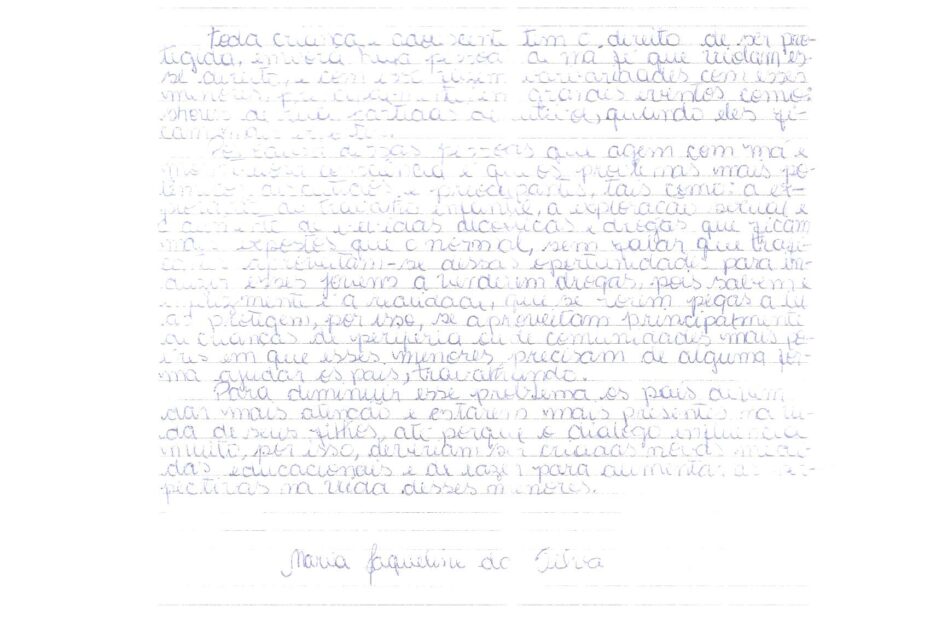 Toda criança e adolescente tem o direito de ser pro-
tegida, embora haja pessoa de má fé que violam es-
se direito, e com isso fazem barbaridades com esses
menores, principalmente em grandes eventos como:
shows de rua, partidas de futebol, quando eles fi-
cam mais
Por causa dessas pessoas que agem com má e
consciência e que os problemas mais po-
lêmico, e preocupantes, tais como: a ex-
ploração do trabalho infantil, a exploração sexual e
o aumento de bebidas alcoólicas e drogas que ficam
mais expostos que o normal, sem falar que trafi-
cantes aproveitam-se dessas oportunidades para in-
duzir esses jovens a venderem drogas, pois sabem e
infelizmente é a realidade, que se forem pegas a lei
as protegem, por isso, se aproveitam principalmente
de crianças de periferia ou de comunidades mais po-
bres em que esses menores precisam de alguma for-
ma ajudar os pais, trabalhando.
Para diminuir esse problema os pais devem
dar mais atenção e estarem mais presentes na vi-
da de seus filhos, até porque o diálogo influencia
muito, por isso, deveriam ser criadas novas medi-
das educacionais e de lazer para aumentar as
pectivas na vida desses menores.
Maria Jaqueline da Silva